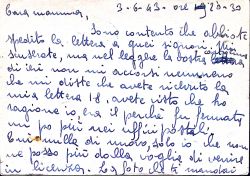 Cara mamma, 3-6-43. ore 20-30
Sono contento che abbiate
spedito la lettera a quei signori
ma nel leggere la vostra lettera
di ieri non mi accorsi nemmeno
che mi diste che avete ricevuto la
mia lettera 18, avete visto che ho
ragione io, era il perché fu fermata
un po più nei uffici postali.
Qui nulla di nuovo, solo io che non
ne posso più dalla voglia di venire
in licenza. La foto che ti mandai